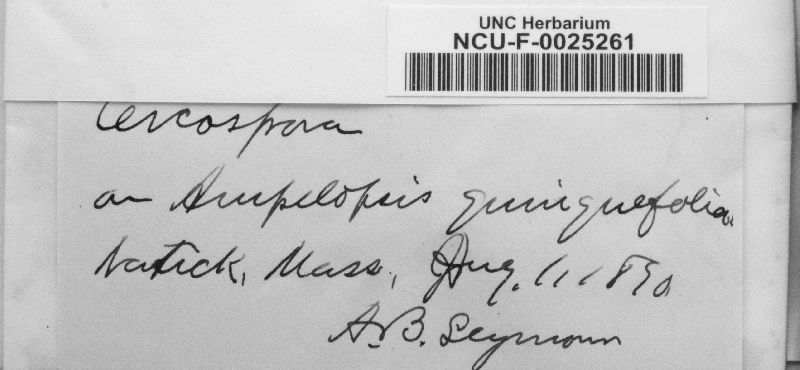 UNC Herbarium
NCU-F-0025261
Cercospora
on Ampelopsis quinquefolia
Natick, Mass, Aug. 1, 1890
A. B. Seymour